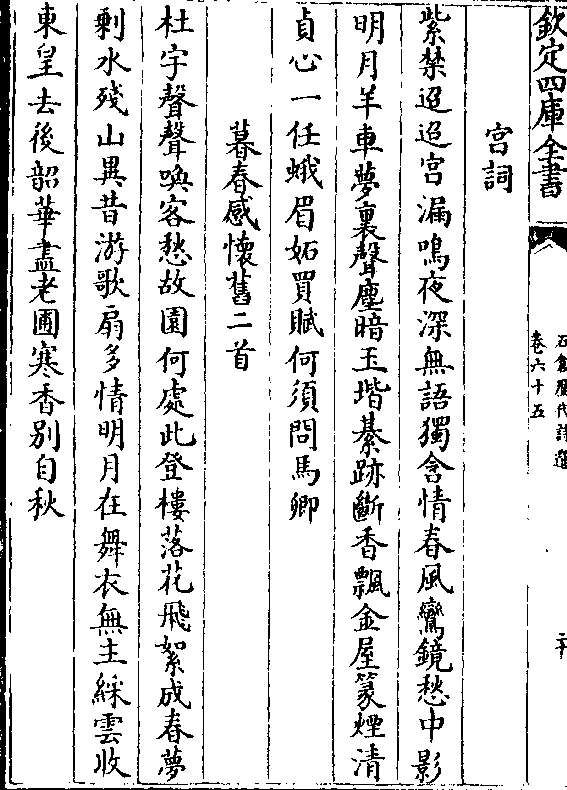 欽定四庫全書
石倉歴代詩選
卷六十五
宫詞
紫禁迢迢宫漏鳴夜深無語獨含情春風鸞鏡愁中影
明月羊車夢裏聲塵暗玉堦綦跡斷香飄金屋篆煙清
貞心一任蛾眉妬買賦何須問馬卿
暮春感懷舊二首
杜宇聲聲喚客愁故園何處此登樓落花飛絮成春夢
剩水殘山異昔游歌扇多情明月在舞衣無主綵雲收
東皇去後韶華盡老圃寒香别自秋